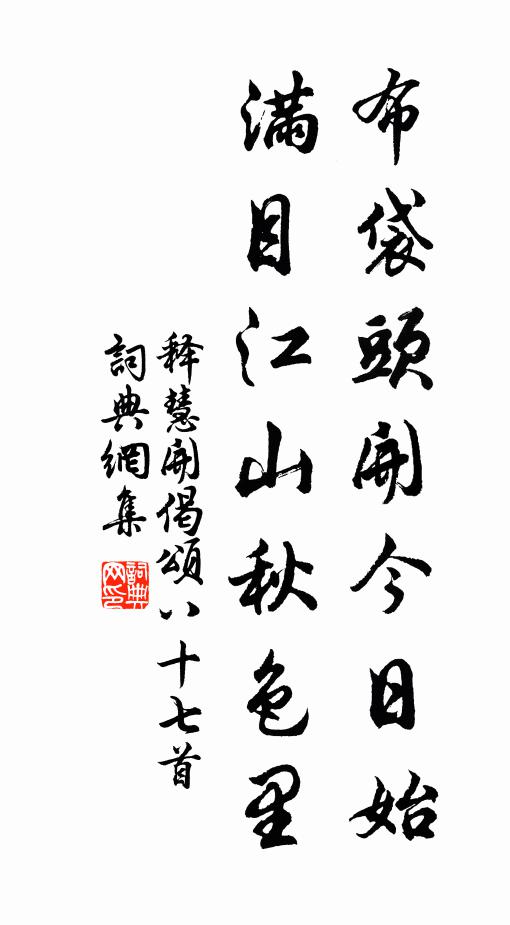 布袋頭開今日始
滿目江山秋色里
释慧開偈頌八十七首
詞典網集
詞典
网印